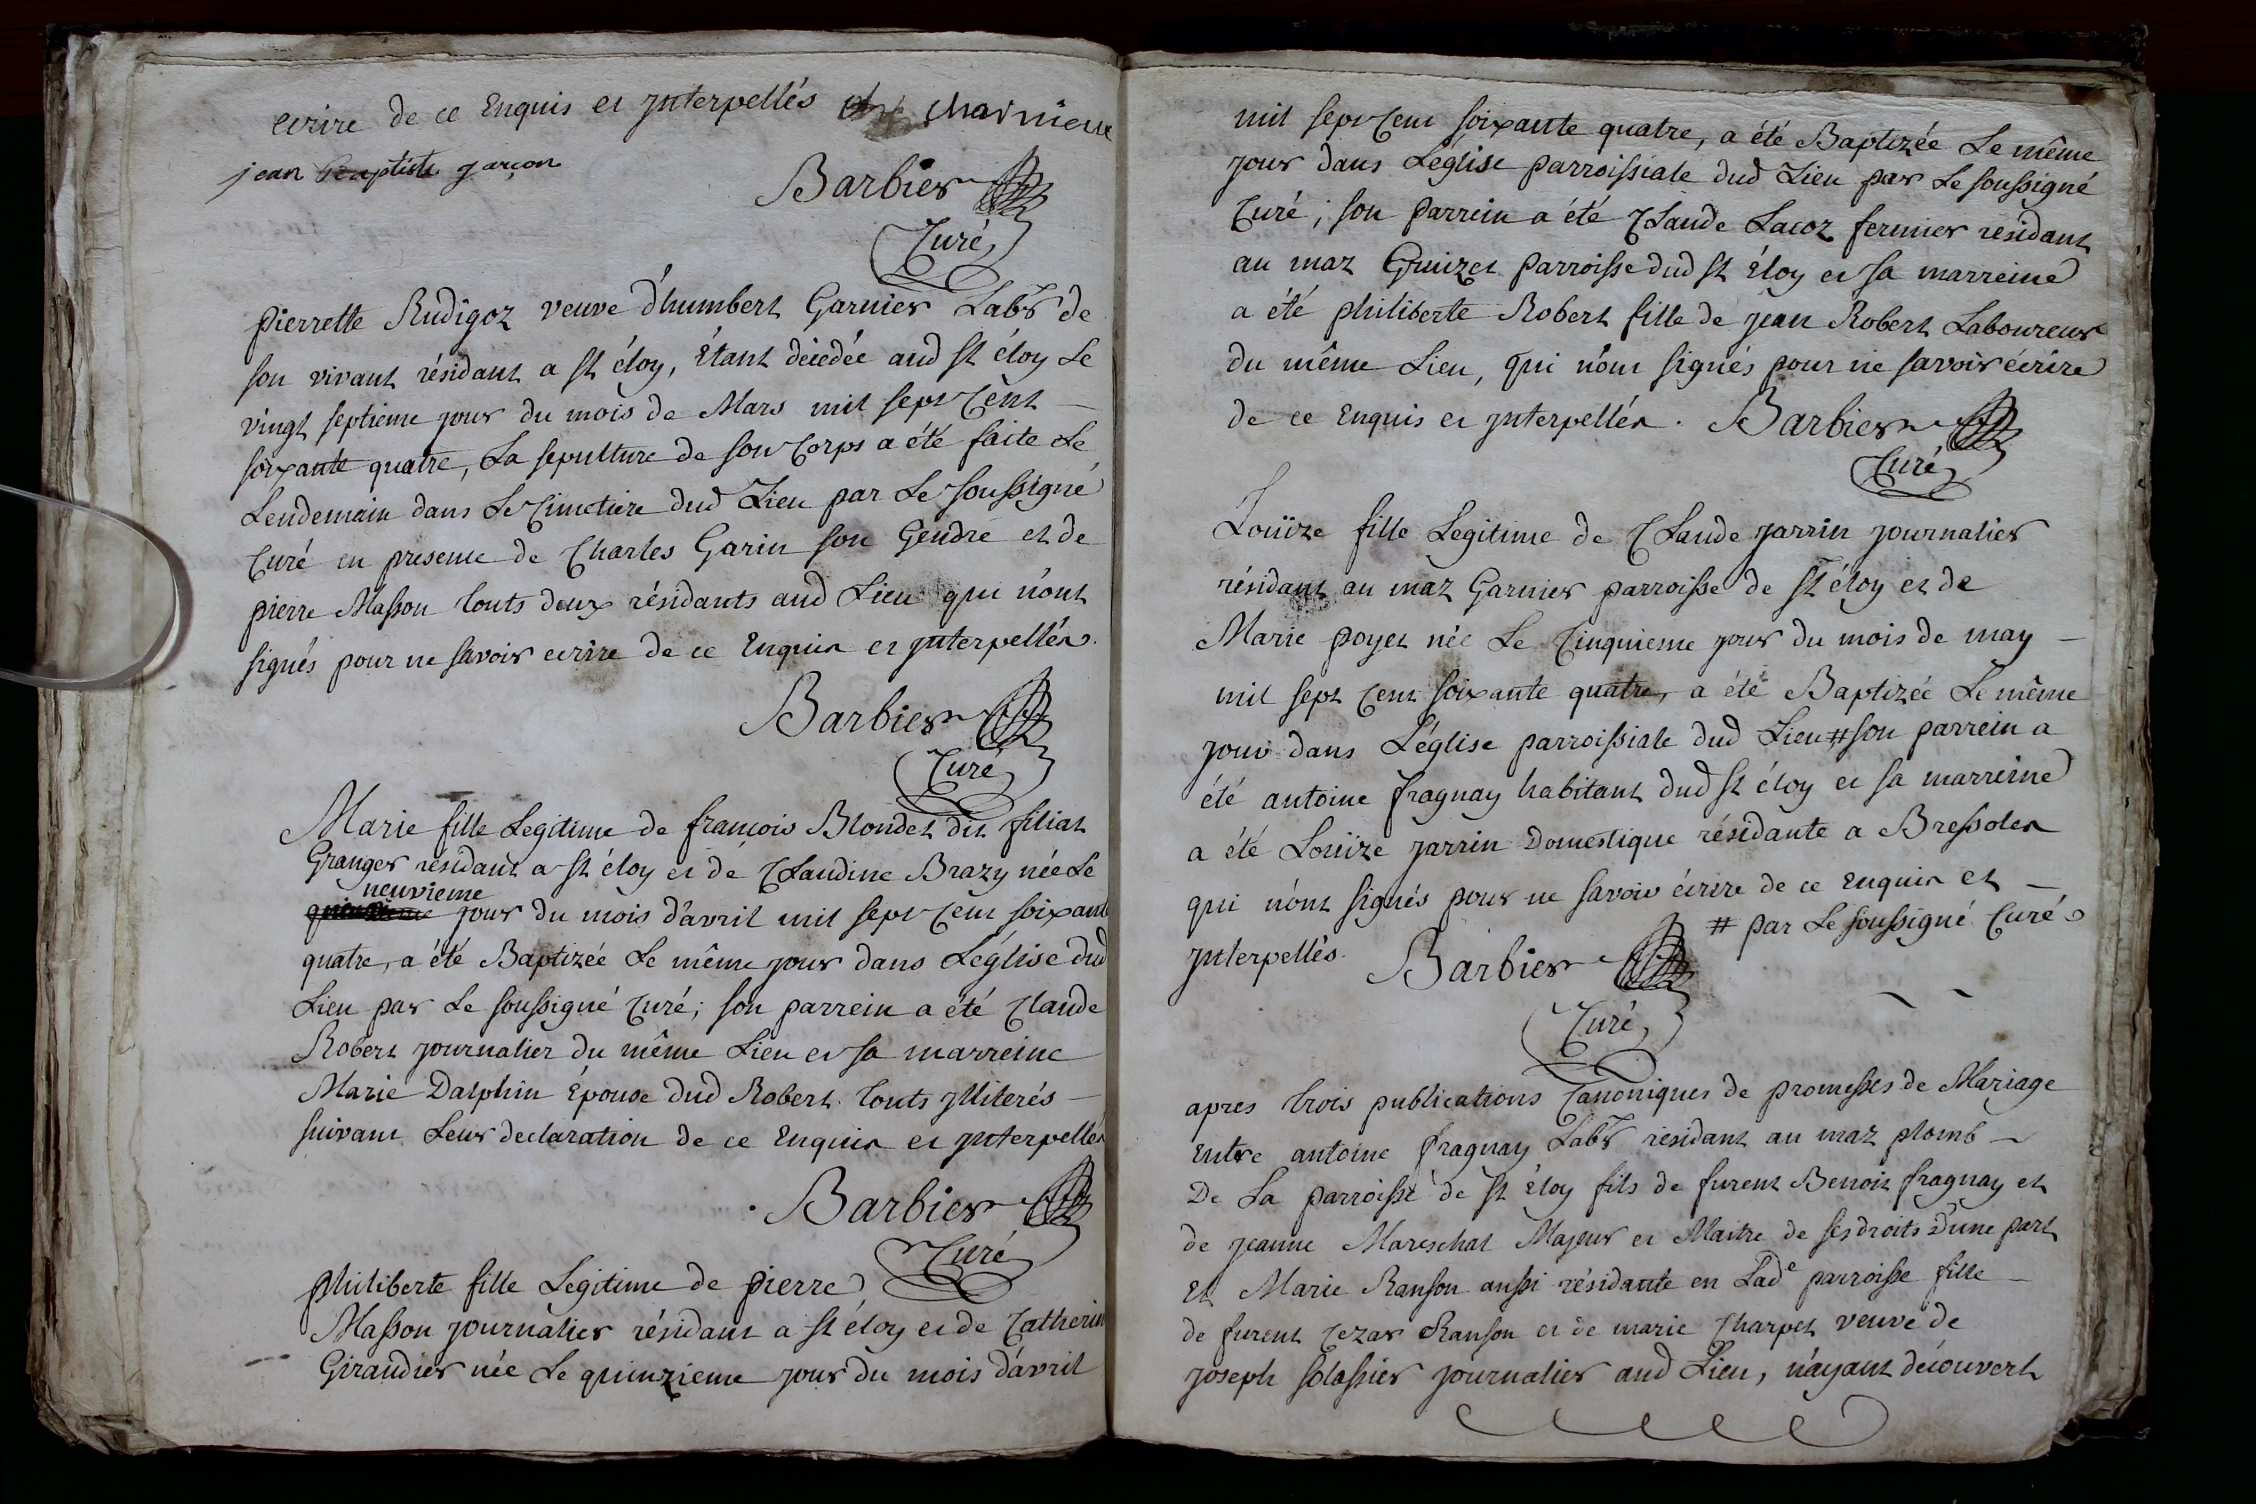 ecrire de ce Enquis et ynterpellés charnieue
jean baptiste garçon
Barbier
Curé
pierrette Rudigoz veuve d'humbert Garnier Labr de
son vivant résidant a st éloy, étant décédée aud st éloy Le
vingt septieme jour du mois de Mars mil sept Cent
soixante quatre, La sepulture de son Corps a été faite Le
Lendemain dans Le Cimetiere dud Lieu par Le soussigné
Curé en presence de Charles Garin son Gendre et de
pierre Masson touts deux résidants aud Lieu qui n'ont
signés pour ne savoir ecrire de ce Enquis et ynterpellés.
Barbier
Curé
Marie fille Legitime de françois Blondet dit filiat
Granger résidant a st éloy et de Claudine Brazy née Le
neuvieme
jour du mois d'avril mil sept Cent soixante
quatre, a été Baptizée Le même jour dans L'église dud
Lieu par Le soussigné Curé; son parrein a été Claude
Robert journalier du même Lieu et sa marreine
Marie Dalphin Épouse dud Robert touts yllitérés
suivant Leur declaration de ce Enquis et ynterpellés
Barbier
Curé
philiberte fille Legitime de pierre
Masson journalier résidant a st éloy et de Catherin
Giraudier née Le quinzieme jour du mois d'avril
mil sept Cent soixante quatre, a été Baptizée Le même
jour dans L'église parroissiale dud Lieu par Le soussigné
Curé; son parrein a été Claude Lacoz fermier résidant
au maz Gruizet parroisse dud st éloy et sa marreine
a été philiberte Robert fille de jean Robert Laboureur
du même Lieu, qui n'ont signés pour ne savoir écrire
de ce Enquis et ynterpellés. Barbier
Curé
Louïze fille Legitime de Claude jarrin journalier
résidant au maz Garnier parroisse de st éloy et de
Marie poyet née Le Cinquieme jour du mois de may
mil sept Cent soixante quatre, a été Baptizée Le même
jour dans L'église parroissiale dud Lieu # son parrein a
été antoine fragnay habitant dud st éloy et sa marreine
a été Louïze jarrin Domestique résidante a Bressoles
qui n'ont signés pour ne savoir écrire de ce Enquis et
# par Le soussigné Curé
ynterpellés. Barbier
Curé
apres trois publications Canoniques de promesses de Mariage
Entre antoine fragnay Labr résidant au maz plomb
De La parroisse de st Éloy fils de furent Benoit fragnay et
de jeanne Mareschal Majeur et Maitre de ses droits d'une part
Et Marie Ranson aussi résidante en Lade parroisse fille
de furent Cezar Ranson et de marie Charpet veuve de
joseph solassier journalier aud Lieu, n'ayant découvert